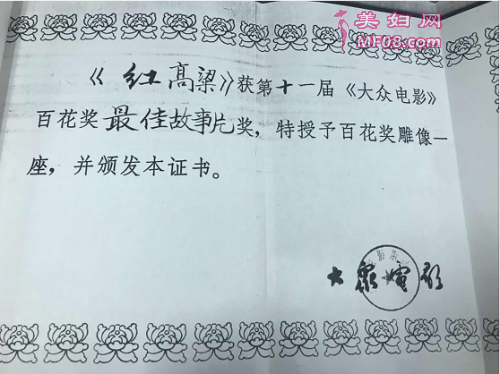 美妇网
MF08.com
《红高梁》获第十一届《大众电影》
百花奖最佳故事片奖，特授予百花奖雕像一
座，并颁发本证书。
大众电影